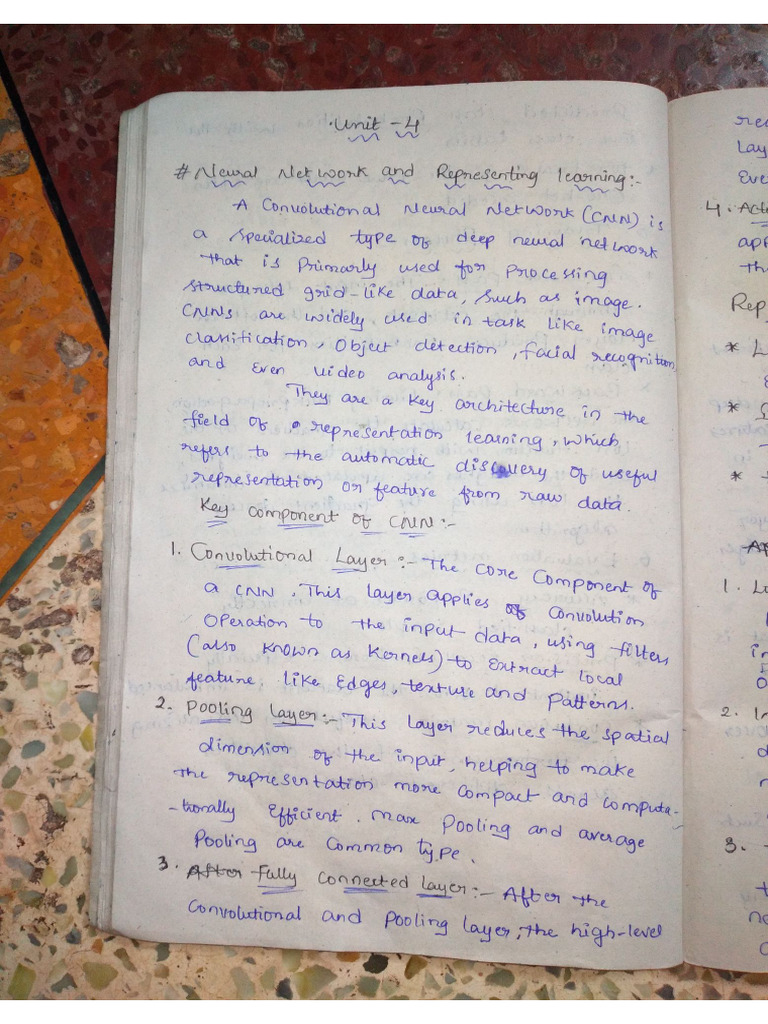 Unit - 4
# Neural Network and Representing learning:-
A Convolutional Neural Network (CNN) is
a specialized type of deep neural network
that is Primarly used for Processing
structured grid-like data, such as image.
CNNs are widely used in task like image
classification, object detection, facial recognition,
and Even video analysis.
They are a key architecture in the
field of representation learning, which
refers to the automatic discovery of useful
representation or feature from raw data.
Key component of CNN:-
1. Convolutional Layer:- The core component of
a CNN. This layer applies convolution
operation to the input data, using filters
(also known as Kernels) to Extract local
feature, like Edges, texture and patterns.
2. Pooling layer:- This Layer reduces the spatial
dimension of the input, helping to make
the representation more compact and computa-
-tionally Efficient. Max Pooling and average
Pooling are common type.
3. After Fully Connected layer:- After the
convolutional and pooling layer, the high-level
Lay
Eve
4. Act
app
Rep
* L
*
*
1. L
in
2. In
3.